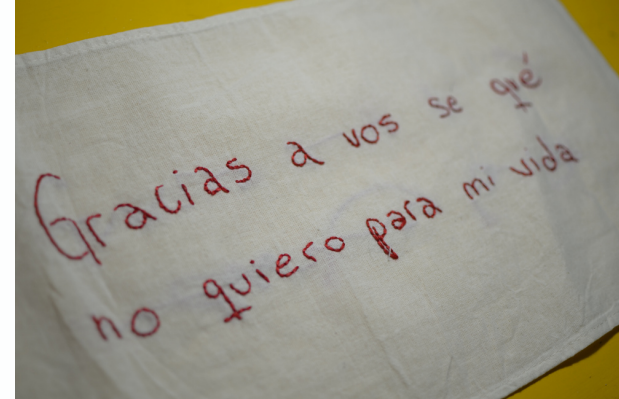 Gracias a vos se qué
no quiero para mi vida